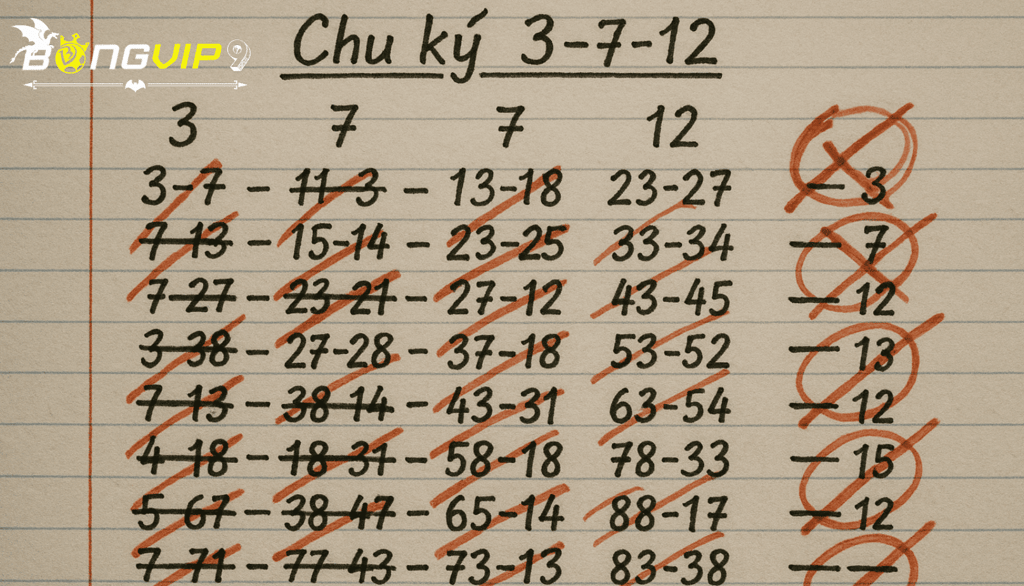 BONGVIP9
Chu ký 3-7-12
3 7 7 12
3-7 - 11-3 - 13-18 23-27 — 3
7-13 - 15-14 - 23-25 33-34 — 7
7-27 - 23-21 - 27-12 43-45 — 12
3-38 - 27-28 - 37-18 53-52 — 13
7-13 - 38-14 - 43-31 63-54 — 12
4-18 - 18-31 - 58-18 78-33 — 15
5-67 - 38-47 - 65-14 88-17 — 12
7-71 - 77-43 - 73-13 83-38 — —